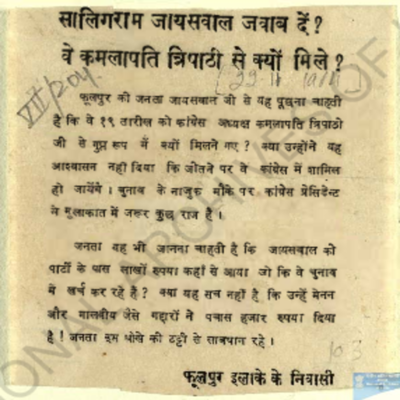 सालिगराम जायसवाल जवाब दें?
वे कमलापति त्रिपाठी से क्यों मिले?
फूलपुर की जनता जायसवाल जी से यह पूछना चाहती
है कि वे १९ तारीख को कांग्रेस अध्यक्ष कमलापति त्रिपाठी
जी से गुप्त रूप में क्यों मिलने गए? क्या उन्होंने यह
आश्वासन नहीं दिया कि जीतने पर वे कांग्रेस में शामिल
हो जायेंगे। चुनाव के नाजुक मौके पर कांग्रेस प्रेसिडेन्ट
से मुलाकात में जरूर कुछ राज है।
जनता यह भी जानना चाहती है कि जायसवाल की
पार्टी के पास लाखों रुपया कहाँ से आया जो कि वे चुनाव
में खर्च कर रहे है? क्या यह सच नहीं है कि उन्हें मेनन
और मालवीय जैसे गद्दारों ने पचास हजार रुपया दिया
है! जनता इस धोखे की टट्टी से सावधान रहे।
फूलपुर इलाके के निवासी